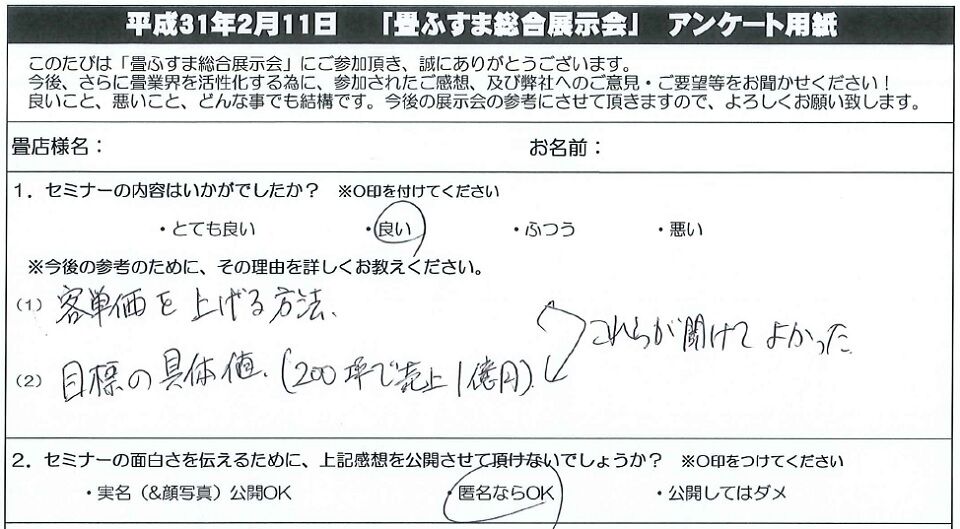 平成31年2月11日 「畳ふすま総合展示会」 アンケート用紙
このたびは「畳ふすま総合展示会」にご参加頂き、誠にありがとうございます。
今後、さらに畳業界を活性化する為に、参加されたご感想、及び弊社へのご意見・ご要望等をお聞かせください！
良いこと、悪いこと、どんな事でも結構です。今後の展示会の参考にさせて頂きますので、よろしくお願い致します。
畳店様名： お名前：
1．セミナーの内容はいかがでしたか？ ※○印を付けてください
・とても良い ・良い ・ふつう ・悪い
※今後の参考のために、その理由を詳しくお教えください。
(1) 客単価を上げる方法、
これらが聞けてよかった
(2) 目標の具体値、(200坪で売上1億円)
2．セミナーの面白さを伝えるために、上記感想を公開させて頂けないでしょうか？ ※○印をつけてください
・実名（&顔写真）公開OK ・匿名ならOK ・公開してはダメ